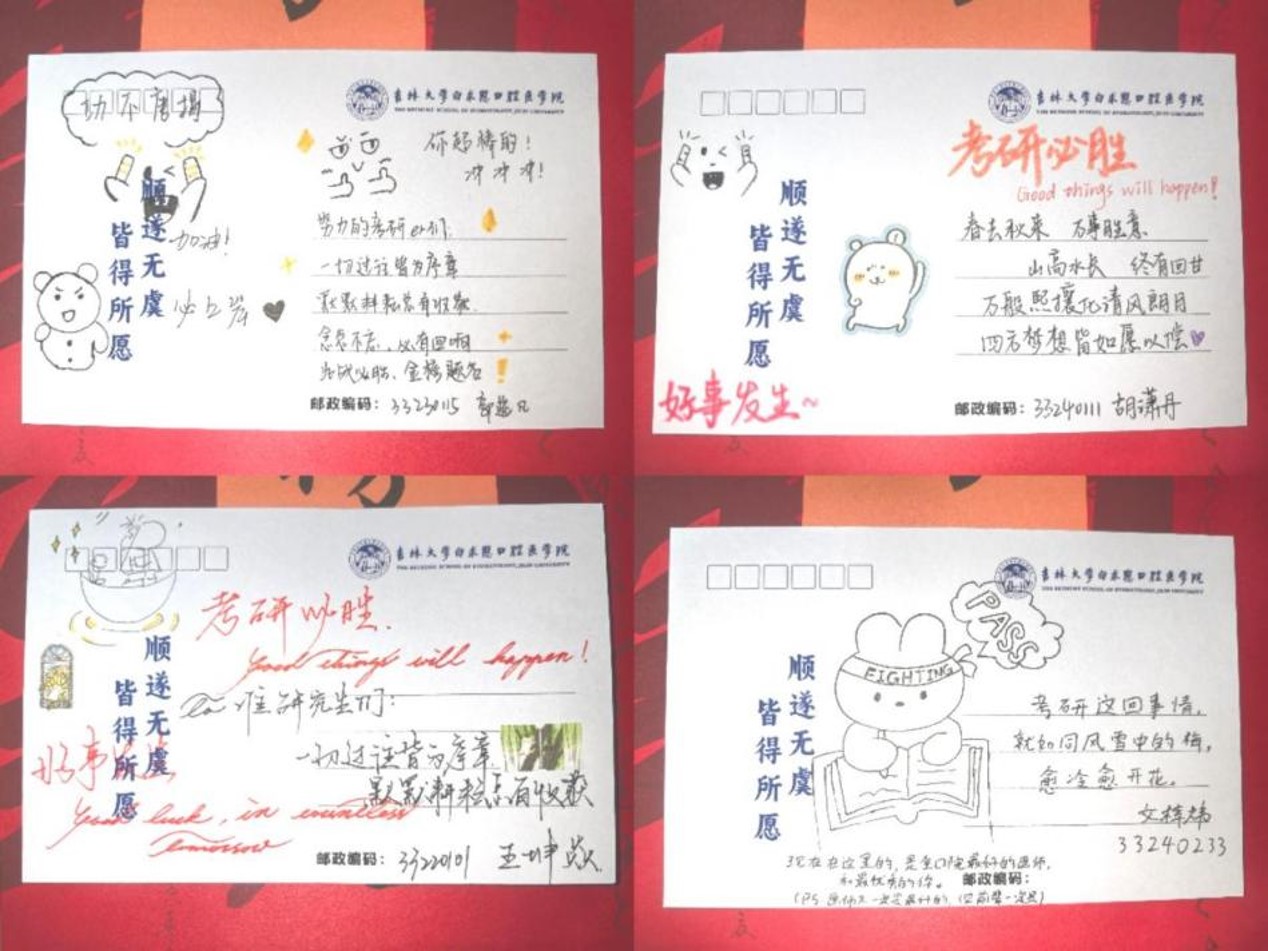 功不唐捐
吉林大学白求恩口腔医学院
THE BETHUNE SCHOOL OF STOMATOLOGY, JILIN UNIVERSITY
你超棒的!
冲冲冲!
顺遂无虞
皆得所愿
加油!
必上岸
努力的考研er们:
一切过往皆为序章
默默耕耘总有收获
念念不忘,必有回响
此战必胜、金榜题名!
邮政编码:33230115
吉林大学白求恩口腔医学院
THE BETHUNE SCHOOL OF STOMATOLOGY, JILIN UNIVERSITY
考研必胜
Good things will happen!
顺遂无虞
皆得所愿
春去秋来 万事胜意
山高水长 终有回甘
万般熙攘化清风朗月
四方梦想皆如愿以偿
好事发生~
邮政编码:33240111 胡潇丹
吉林大学白求恩口腔医学院
THE BETHUNE SCHOOL OF STOMATOLOGY, JILIN UNIVERSITY
考研必胜.
Good things will happen!
顺遂无虞
皆得所愿
准研究生们:
一切过往皆为序章
默默耕耘总有收获
好事发生
Good luck, in countless
tomorrow
邮政编码:33220101 王坤
吉林大学白求恩口腔医学院
THE BETHUNE SCHOOL OF STOMATOLOGY, JILIN UNIVERSITY
PASS
FIGHTING
顺遂无虞
皆得所愿
考研这回事情,
就如同风雪中的梅,
愈冷愈开花。
33240233
现在在这里的,是全口院最好的医师,
和最优秀的你。
邮政编码: